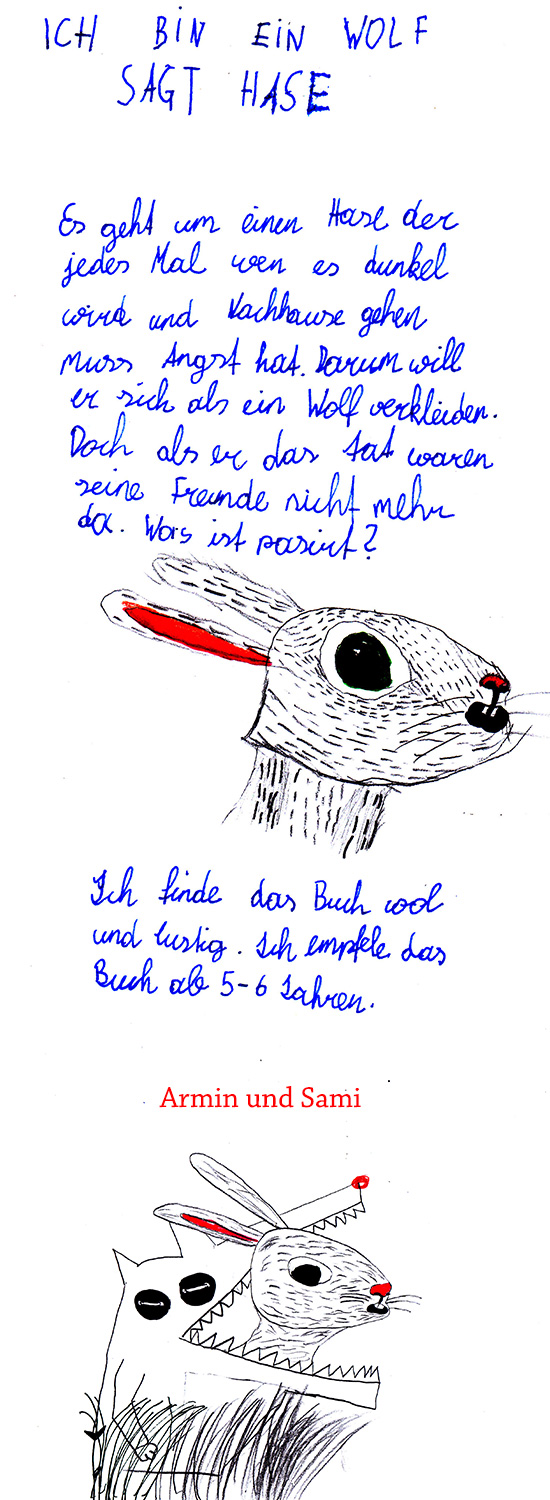 ICH BIN EIN WOLF
SAGT HASE
Es geht um einen Hase der
jedes Mal wen es dunkel
wird und Nachhause gehen
muss Angst hat. Darum will
er sich als ein Wolf verkleiden.
Doch als er das tat waren
seine Freunde nicht mehr
da. Was ist pasirt?
Ich finde das Buch cool
und lustig. Ich empfele das
Buch ab 5-6 Jahren.
Armin und Sami